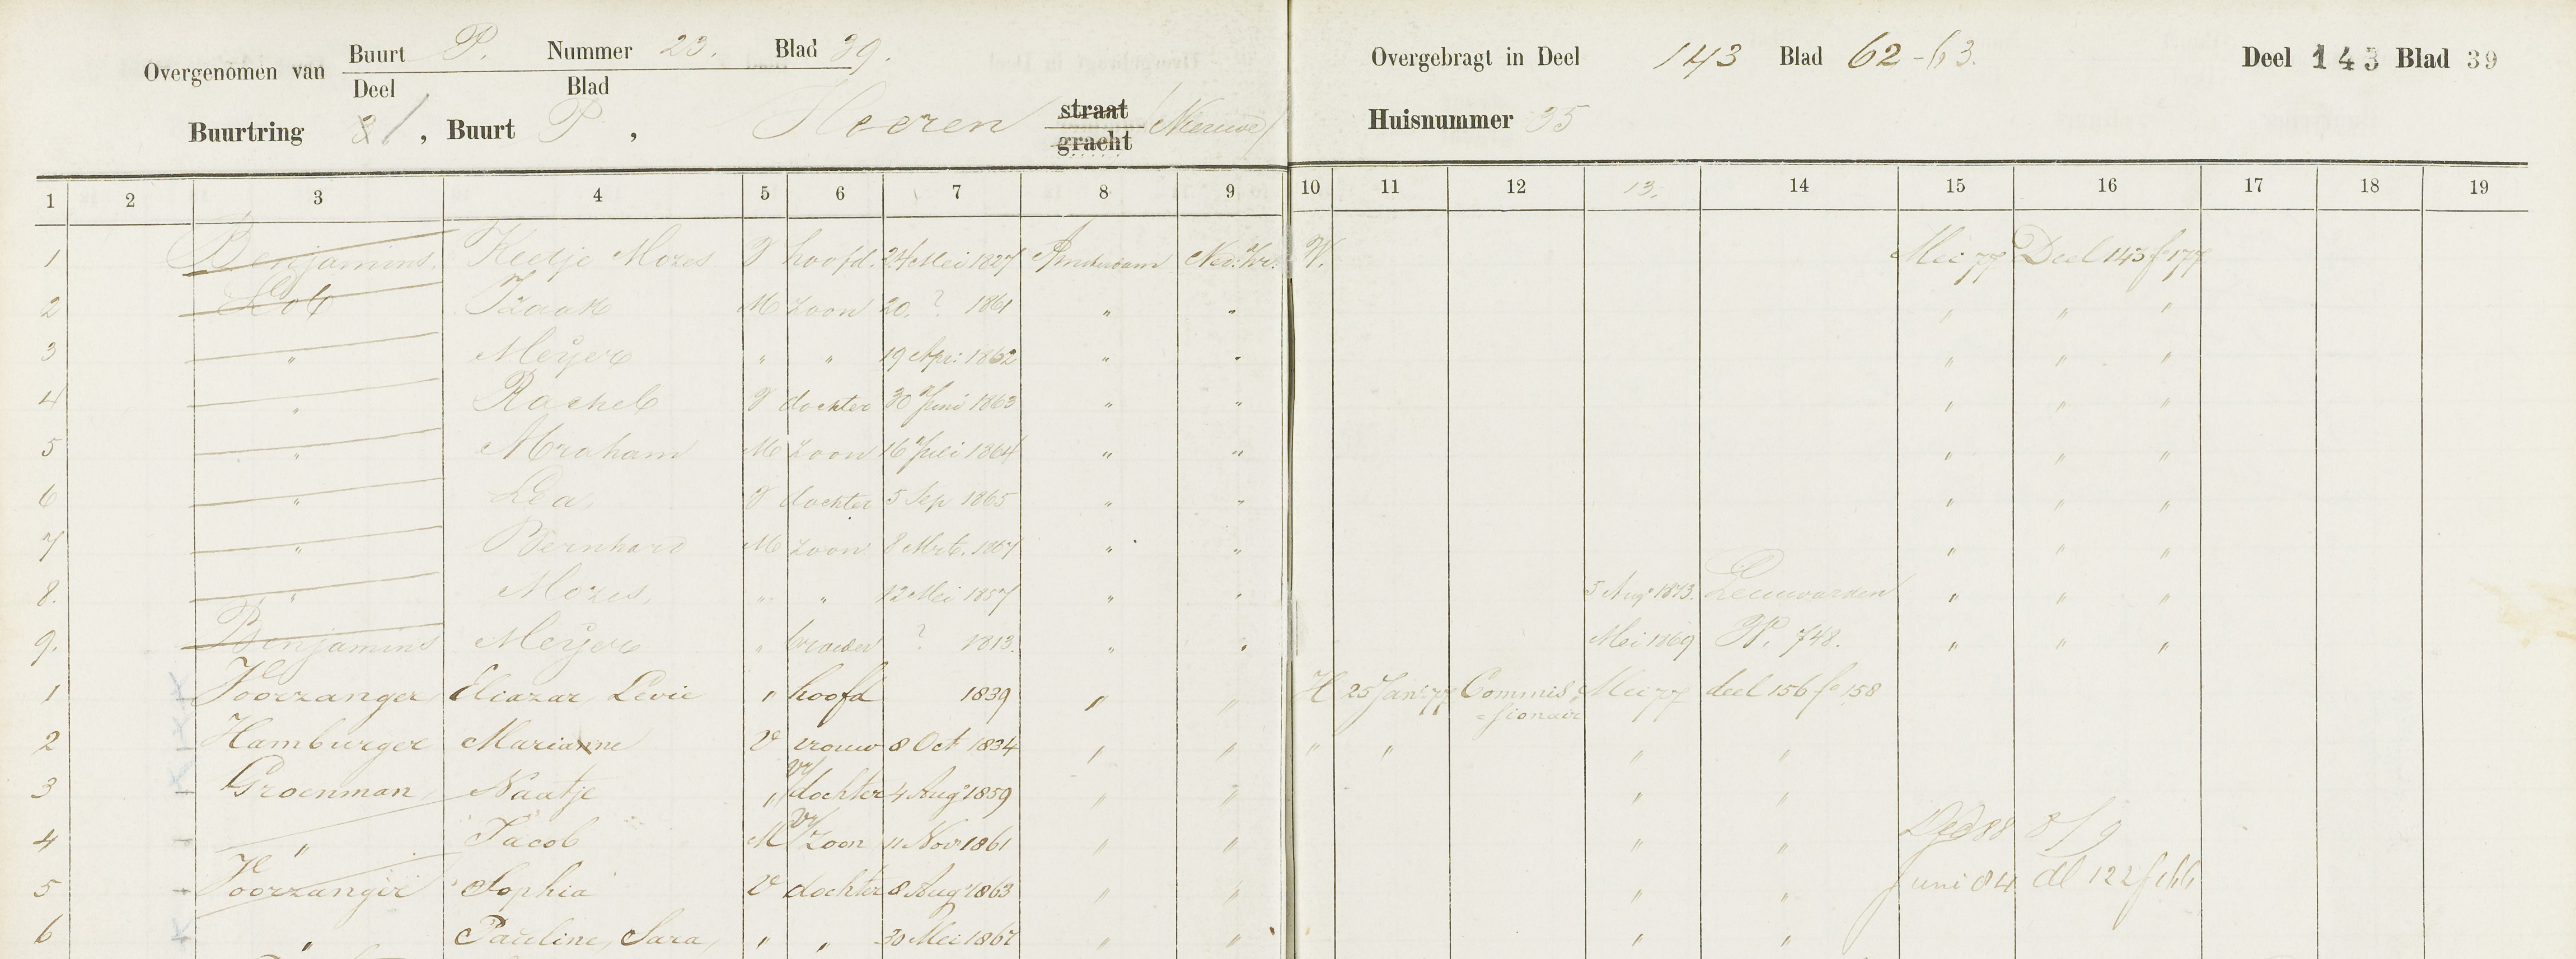 Overgenomen van Buurt P. Nummer 23. Blad 39.
Deel Blad
Buurtring 8 1, Buurt P, Heeren straat gracht (Nieuwe)
Overgebragt in Deel 143 Blad 62-63. Deel 143 Blad 39
Huisnummer 35
1 2 3 4 5 6 7 8 9 10 11 12 13. 14 15 16 17 18 19
1 Benjamins. Keetje Mozes V hoofd. 24 Mei 1827 Amsterdam Ned: Isr: W. Mei 77 Deel 143 fo 177
2 Lob Izaak M zoon 20. ?. 1861 " " " " "
3 " Meijer " " 19 Apr: 1862 " " " " "
4 " Rachel V dochter 30 Juni 1863 " " " " "
5 " Abraham M zoon 16 Juli 1864 " " " " "
6 " Lea V dochter 5 Sep 1865 " " " " "
7 " Bernhard M zoon 8 Mrt. 1867 " " " " "
8. " Mozes, " " 12 Mei 1857 " " 5 Aug 1873. Leeuwarden " " "
9. Benjamins Meijer " broeder ? 1813. " " Mei 1869 W. 748. " " "
1 Voorzanger Eleazar, Levie " hoofd 1839 " " H 25 Jan: 77 Commis= Mei 77 deel 156 fo 158
=sionair
2 Hamburger Marianne V vrouw 8 Oct 1834 " " " " " "
3 Groenman Naatje " vr/dochter 4 Aug 1859 " " " "
4 " Jacob M vr/zoon 11 Nov 1861 " " " " 88 8/9
5 Voorzanger Sophia V dochter 8 Aug 1863 " " " " Juni 84 dl 122 f 66
6 " Pauline, Sara, " " 30 Mei 1867 " " " "